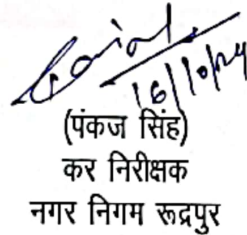 16/10/24
(पंकज सिंह)
कर निरीक्षक
नगर निगम रूद्रपुर